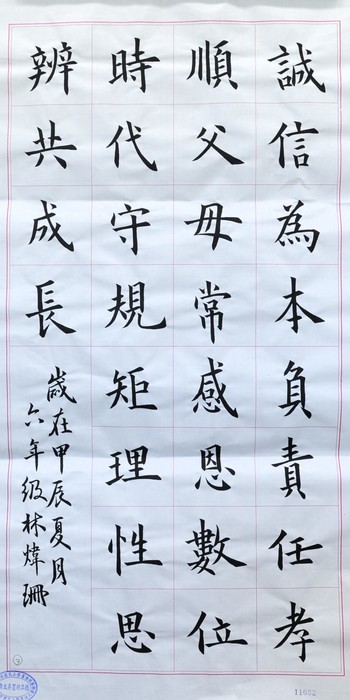 誠信為本負責任孝
順父母常感恩數位
時代守規矩理性思
辨共成長
歲在甲辰夏月
六年級林煒珊
11602